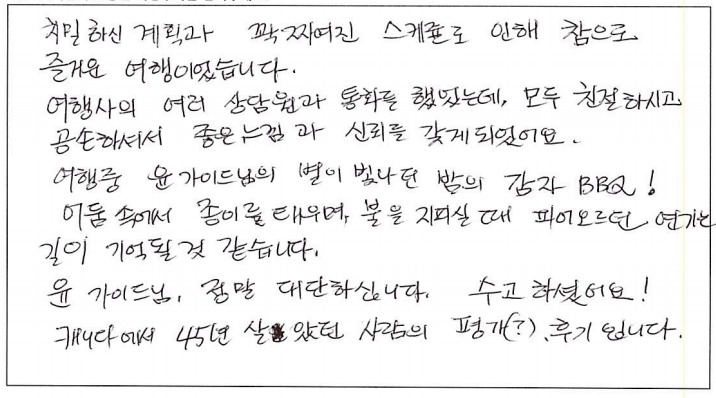 치밀하신 계획과 꽉 짜여진 스케쥴로 인해 참으로
즐거운 여행이었습니다.
여행사의 여러 상담원과 통화를 했었는데, 모두 친절하시고
공손하셔서 좋은 느낌과 신뢰를 갖게 되었어요.
여행중 윤 가이드님의 별이 빛나던 밤의 감자 BBQ!
어둠 속에서 종이를 태우며, 불을 지피실 때 피어오르던 연기는
길이 기억될 것 같습니다.
윤 가이드님, 정말 대단하십니다. 수고하셨어요!
캐나다에서 45년 살았던 사람의 평가(?), 후기 입니다.